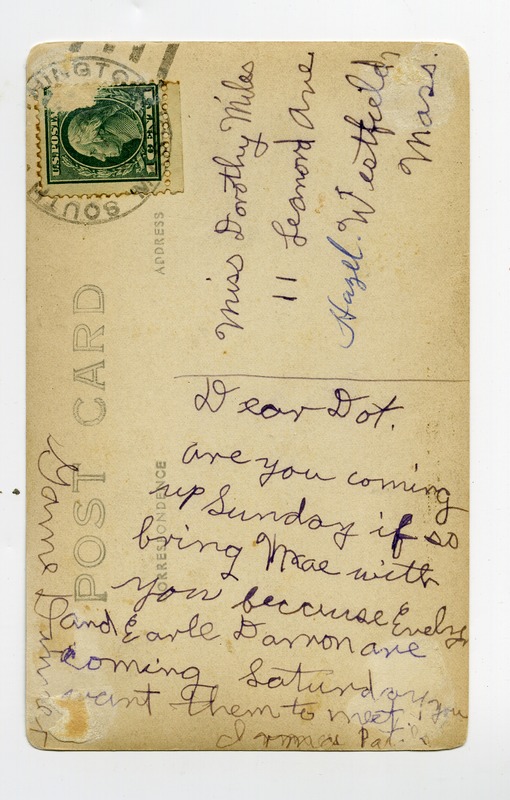 HINGTON
SOUTH
U.S. POSTAGE
1 CENT 1
POST CARD
ADDRESS
CORRESPONDENCE
Miss Dorothy Miles
11 Leanord Ave
Westfield
Mass.
Hazel.
Dear Dot.
are you coming
up Sunday if so
bring Mae with
you because Evelyn
and Earle Darron are
coming Saturday
want them to meet you